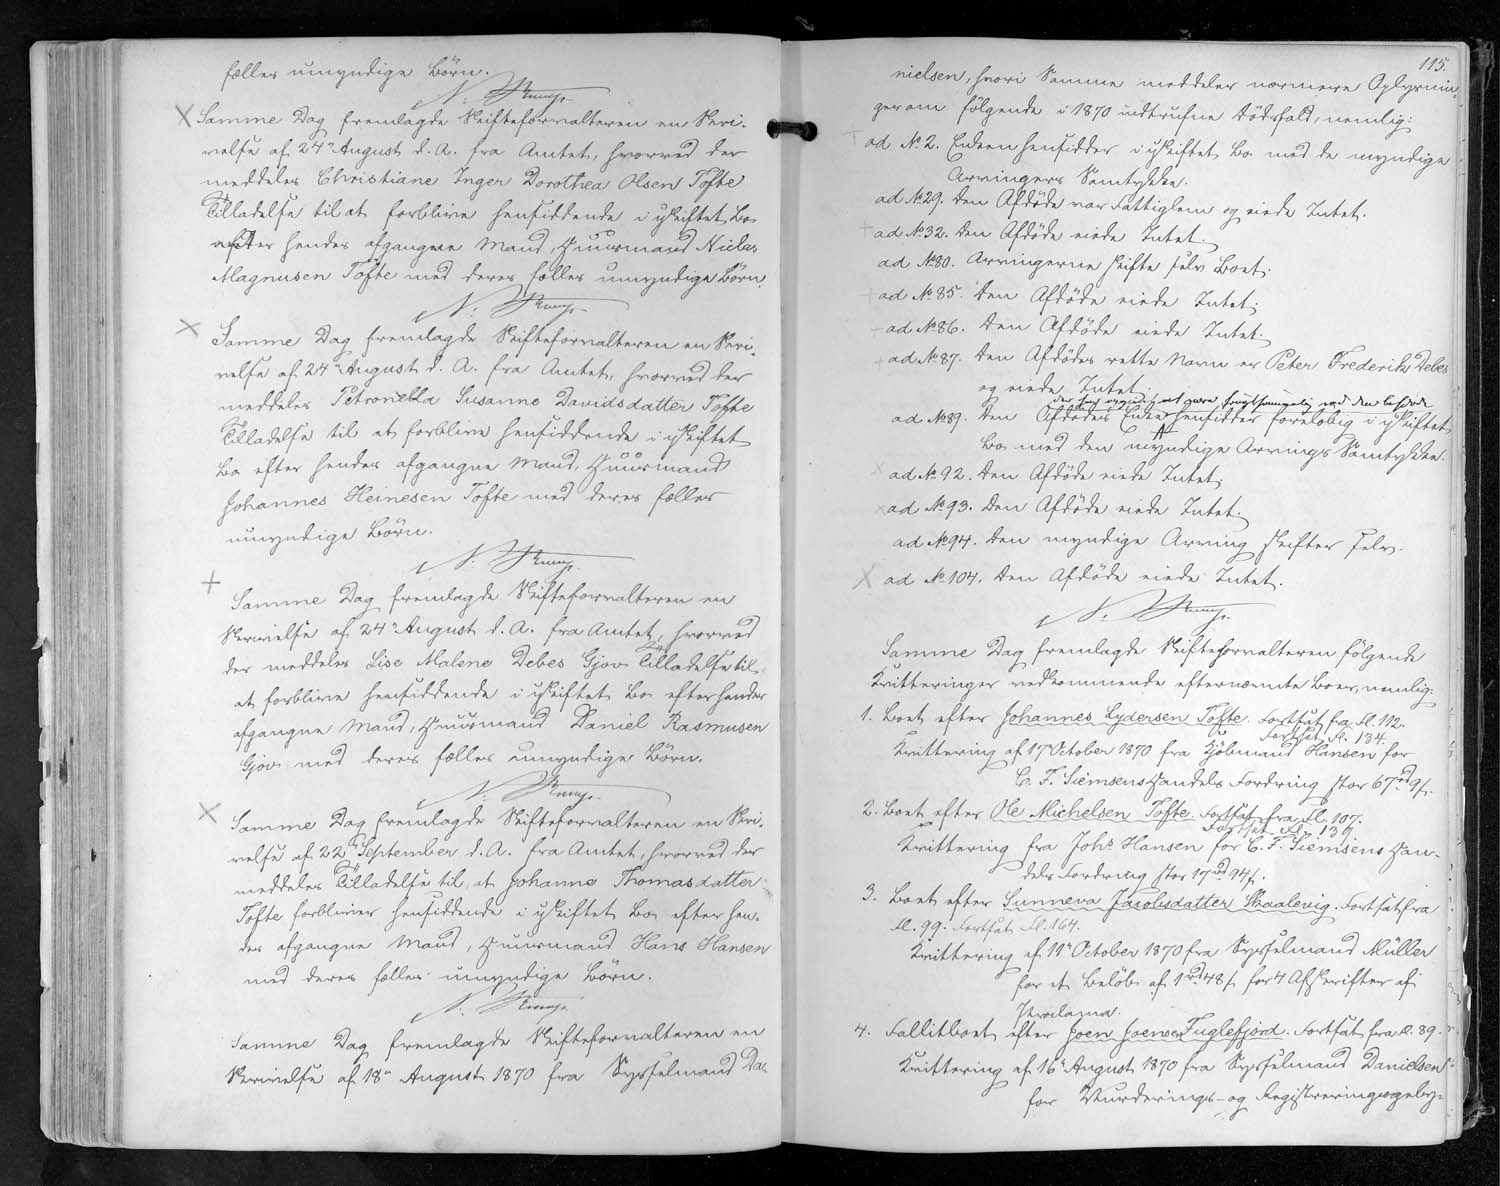 fælles umyndige Børn.
Samme Dag fremlagde Skifteforvalteren en Skri-
velse af 24n August d. A. fra Amtet, hvorved der
meddeles Christiane Inger Dorothea Olsen Tofte
Tilladelse til at forblive hensiddende i uskiftet Bo
efter hendes afgangne Mand, Huusmand Niclas
Magnusen Tofte med deres fælles umyndige Børn.
Samme Dag fremlagde Skifteforvalteren en Skri-
velse af 24n August d. A. fra Amtet, hvorved der
meddeles Petronella Susanne Davidsdatter Tofte
Tilladelse til at forblive hensiddende i uskiftet
Bo efter hendes afgangne Mand, Huusmand
Johannes Heinesen Tofte med deres fælles
umyndige Børn.
Samme Dag fremlagde Skifteforvalteren en
Skrivelse af 24n August d. A. fra Amtet, hvorved
der meddeles Lise Malene Debes Gjov Tilladelse til
at forblive hensiddende i uskiftet Bo efter hendes
afgangne Mand, Huusmand Daniel Rasmusen
Gjov med deres fælles umyndige Børn.
Samme Dag fremlagde Skifteforvalteren en Skri-
velse af 22n September d. A. fra Amtet, hvorved der
meddeles Tilladelse til, at Johanne Thomasdatter
Tofte forbliver hensiddende i uskiftet Bo efter hen-
des afgangne Mand, Huusmand Hans Hansen
med deres fælles umyndige Børn.
Samme Dag fremlagde Skifteforvalteren en
Skrivelse af 18n August 1870 fra Sysselmand Da-
115.
nielsen, hvori Samme meddeler nærmere Oplysnin-
ger om følgende i 1870 indtrufne Dødsfald, nemlig:
ad No. 2. Enken hensidder i uskiftet Bo med de myndige
Arvingers Samtykke.
ad No. 29. Den Afdøde var Fattiglem og eiede Intet.
ad No. 32. Den Afdøde eiede Intet.
ad No. 80. Arvingerne skifte selv Boet.
ad No. 85. Den Afdøde eiede Intet.
ad No. 86. Den Afdøde eiede Intet.
ad No. 87. Den Afdødes rette Navn er Peter Frederik Debes
og eiede Intet.
ad No. 89. Den Afdødes Enke hensidder foreløbig i uskiftet
Bo med den myndige Arvings Samtykke.
ad No. 92. Den Afdøde eiede Intet.
ad No. 93. Den Afdøde eiede Intet.
ad No. 94. Den myndige Arving skifter selv.
ad No. 104. Den Afdøde eiede Intet.
Samme Dag fremlagde Skifteforvalteren følgende
Kvitteringer vedkommende efternævnte Boer, nemlig:
1. Boet efter Johannes Lydersen Tofte. Fortsat fra Fl. 112.
Fortsat Fl. 134.
Kvittering af 17 October 1870 fra Kjøbmand Hansen for
C. F. Siemsens Handels Fordring stor 67 rd 9 s.
2. Boet efter Ole Michelsen Tofte. Fortsat fra Fl. 107.
Fortsat Fl. 139.
Kvittering fra Johs. Hansen for C. F. Siemsens Han-
dels Fordring stor 17 rd 94 s.
3. Boet efter Sunneva Jacobsdatter Skaalevig. Fortsat fra
Fl. 99. Fortsat Fl. 164.
Kvittering af 11n October 1870 fra Sysselmand Müller
for et Beløb af 1 rd 48 s for 4 Afskrifter af
Proclama.
4. Fallitboet efter Joen Joensen Fuglefjord. Fortsat fra Fl. 89.
Kvittering af 16n August 1870 fra Sysselmand Danielsen
for Vurderings- og Registreringsgeby-